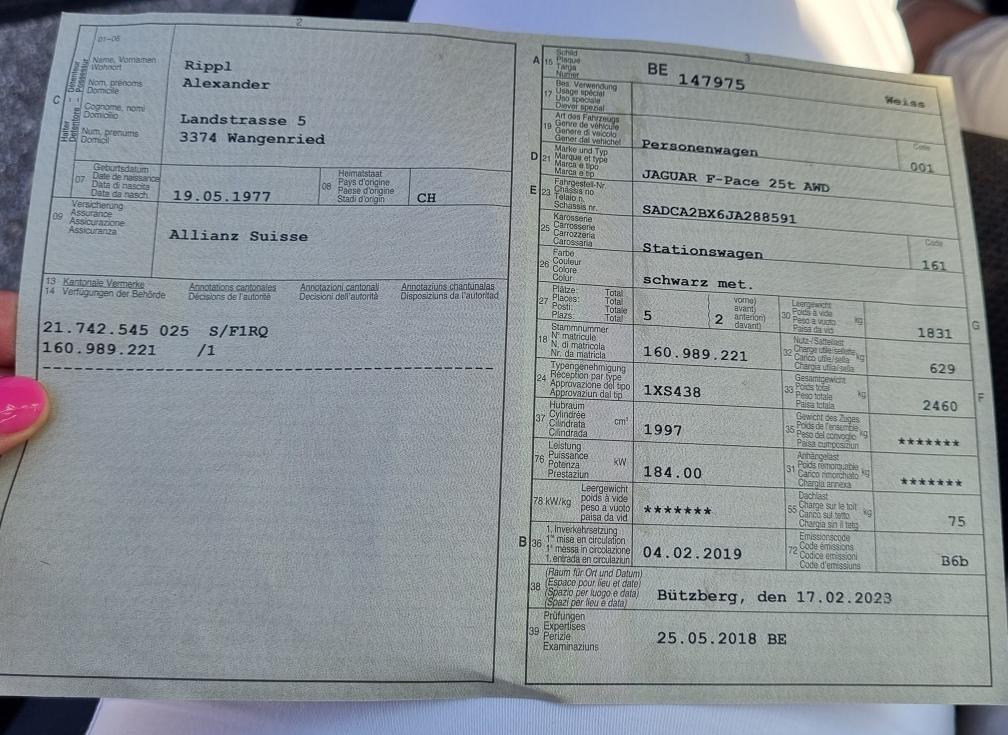 2
01-06
C
Halter Détenteur
Detentore Possessur
Name, Vornamen
Wohnort
Nom, prénoms
Domicile
Cognome, nomi
Domicilio
Num, prenums
Domicil
Rippl
Alexander
Landstrasse 5
3374 Wangenried
07
Geburtsdatum
Date de naissance
Data di nascita
Data da nasch.
19.05.1977
08
Heimatstaat
Pays d'origine
Paese d'origine
Stadi d'origin
CH
09
Versicherung
Assurance
Assicurazione
Assicuranza
Allianz Suisse
13 Kantonale Vermerke Annotations cantonales Annotazioni cantonali Annotaziuns chantunalas
14 Verfügungen der Behörde Décisions de l'autorité Decisioni dell'autorità Disposiziuns da l'autoritad
21.742.545 025 S/F1RQ
160.989.221 /1
3
A 15
Schild
Plaque
Targa
Numer
BE 147975 Weiss
17
Bes. Verwendung
Usage spécial
Uso speciale
Diever spezial
19
Art des Fahrzeugs
Genre de véhicule
Genere di veicolo
Gener dal vehichel
Personenwagen
Code
001
D 21
Marke und Typ
Marque et type
Marca e tipo
Marca e tip
JAGUAR F-Pace 25t AWD
E 23
Fahrgestell-Nr.
Châssis no
Telaio n.
Schassis nr.
SADCA2BX6JA288591
25
Karosserie
Carrosserie
Carrozzeria
Carossaria
Stationswagen
Code
161
26
Farbe
Couleur
Colore
Colur
schwarz met.
27
Plätze: Total
Places: Total
Posti: Totale
Plazs: Total
5
vorne)
avant)
anteriori)
davant)
2
30
Leergewicht
Poids à vide
Peso a vuoto
Paisa da vid
kg
1831
G
18
Stammnummer
N° matricule
N. di matricola
Nr. da matricla
160.989.221
32
Nutz-/Sattellast
Charge utile/sellette
Carico utile/sella
Chargia utila/sella
kg
629
24
Typengenehmigung
Réception par type
Approvazione del tipo
Approvaziun dal tip
1XS438
33
Gesamtgewicht
Poids total
Peso totale
Paisa totala
kg
2460
F
37
Hubraum
Cylindrée
Cilindrata
Cilindrada
cm³
1997
35
Gewicht des Zuges
Poids de l'ensemble
Peso del convoglio
Paisa cumposiziun
kg
*******
76
Leistung
Puissance
Potenza
Prestaziun
kW
184.00
31
Anhängelast
Poids remorquable
Carico rimorchiato
Chargia annexa
kg
*******
78 kW/kg
Leergewicht
poids à vide
peso a vuoto
paisa da vid
*******
55
Dachlast
Charge sur le toit
Carico sul tetto
Chargia sin il tetg
kg
75
B 36
1. Inverkehrsetzung
1re mise en circulation
1a messa in circolazione
1. entrada en circulaziun
04.02.2019
72
Emissionscode
Code émissions
Codice emissioni
Code d'emissiuns
B6b
38
(Raum für Ort und Datum)
(Espace pour lieu et date)
(Spazio per luogo e data)
(Spazi per lieu e data)
Bützberg, den 17.02.2023
39
Prüfungen
Expertises
Perizie
Examinaziuns
25.05.2018 BE